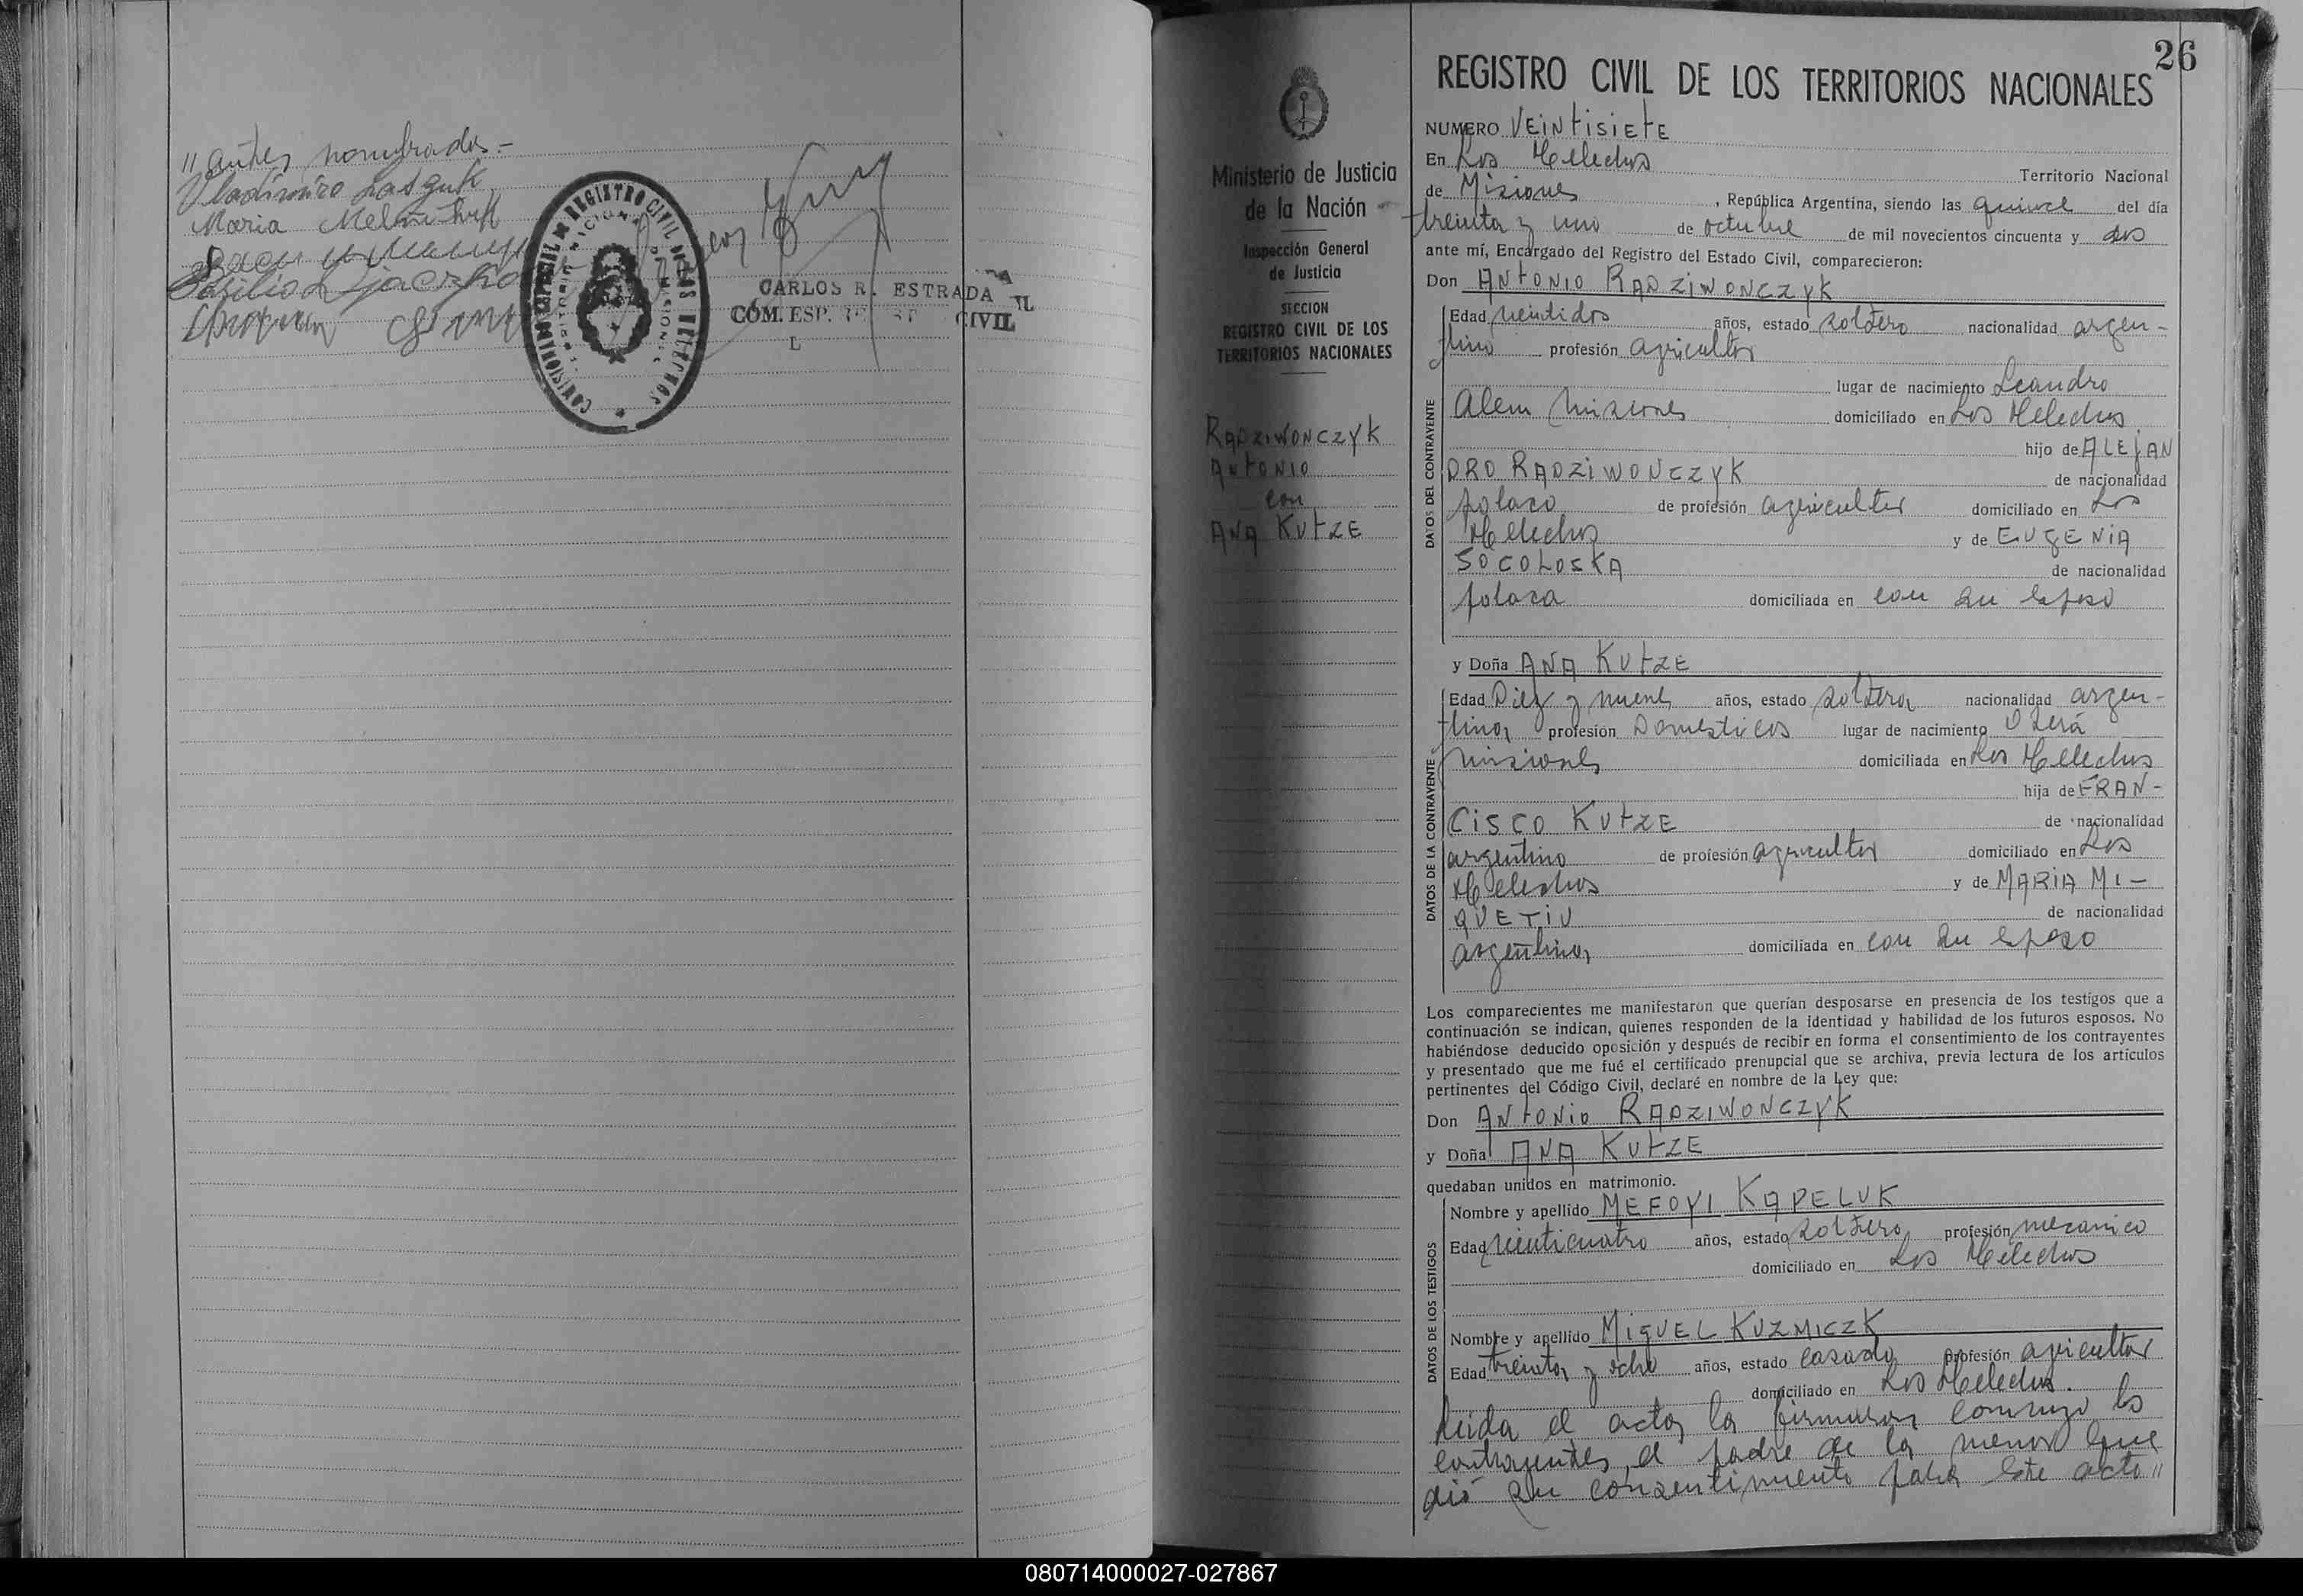 " antes nombrados.-
Vladimiro Lasguk
Maria Melni
Basilio
CARLOS R. ESTRADA
COM. ESP. CIVIL
COMISIONADO ESPECIAL DE REGISTRO CIVIL DE LOS HELECHOS
26
REGISTRO CIVIL DE LOS TERRITORIOS NACIONALES
Ministerio de Justicia
de la Nación
Inspección General
de Justicia
SECCION
REGISTRO CIVIL DE LOS
TERRITORIOS NACIONALES
RADZIWONCZYK
ANTONIO
con
ANA KUTZE
NUMERO VEINTISIETE
En Los Helechos Territorio Nacional
de Misiones, República Argentina, siendo las quince del día
treinta y uno de octubre de mil novecientos cincuenta y dos
ante mí, Encargado del Registro del Estado Civil, comparecieron:
Don ANTONIO RADZIWONCZYK
DATOS DEL CONTRAYENTE
Edad veintidos años, estado soltero nacionalidad argen-
tino profesión agricultor
lugar de nacimiento Leandro
Alem Misiones domiciliado en Los Helechos
hijo de ALEJAN
DRO RADZIWONCZYK de nacionalidad
polaco de profesión agricultor domiciliado en Los
Helechos y de EUGENIA
SOCOLOSKA de nacionalidad
polaca domiciliada en con su esposo
y Doña ANA KUTZE
DATOS DE LA CONTRAYENTE
Edad Diez y nueve años, estado soltera nacionalidad argen-
tina profesión Domesticos lugar de nacimiento Oberá
Misiones domiciliada en Los Helechos
hija de FRAN-
CISCO KUTZE de nacionalidad
argentino de profesión agricultor domiciliado en Los
Helechos y de MARIA MI-
QUETIU de nacionalidad
argentina domiciliada en con su esposo
Los comparecientes me manifestaron que querían desposarse en presencia de los testigos que a
continuación se indican, quienes responden de la identidad y habilidad de los futuros esposos. No
habiéndose deducido oposición y después de recibir en forma el consentimiento de los contrayentes
y presentado que me fué el certificado prenupcial que se archiva, previa lectura de los artículos
pertinentes del Código Civil, declaré en nombre de la Ley que:
Don ANTONIO RADZIWONCZYK
y Doña ANA KUTZE
quedaban unidos en matrimonio.
DATOS DE LOS TESTIGOS
Nombre y apellido MEFOYI KAPELUK
Edad veinticuatro años, estado soltero profesión mecanico
domiciliado en Los Helechos
Nombre y apellido MIGUEL KUZMICZK
Edad treinta y ocho años, estado casado profesión agricultor
domiciliado en Los Helechos.
Leida el acta, la firmaron conmigo los
contrayentes, el padre de la menor que
dió su consentimiento para este acto "
080714000027-027867